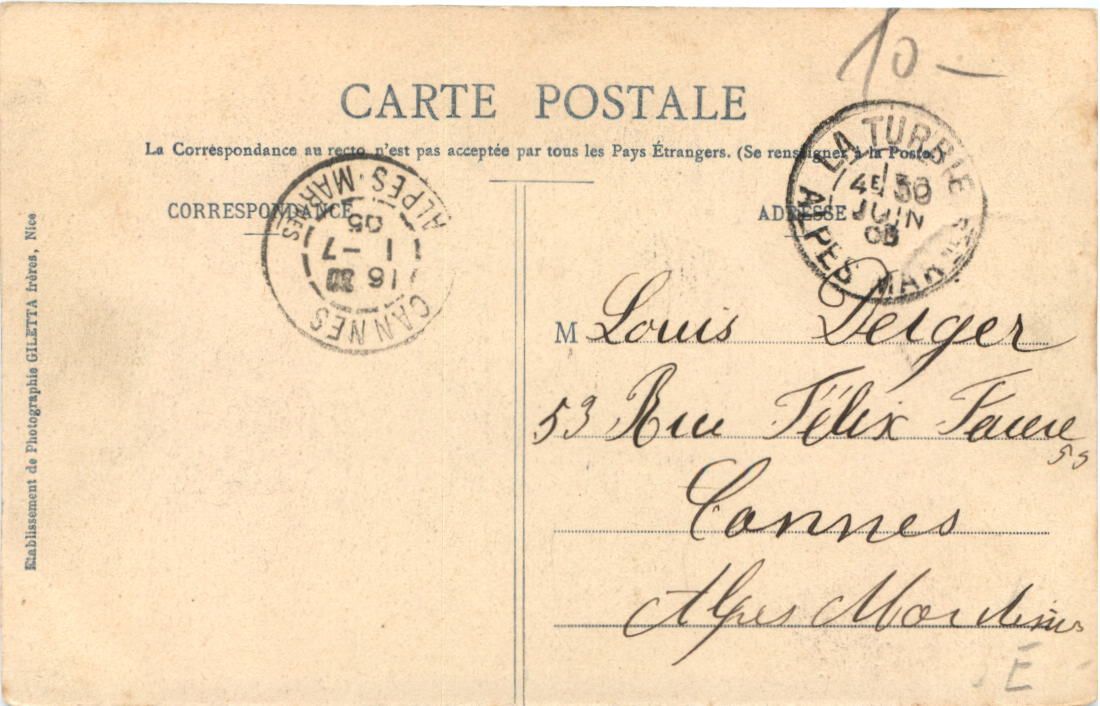 10 —
CARTE POSTALE
La Correspondance au recto n'est pas acceptée par tous les Pays Étrangers. (Se renseigner à la Poste.)
CORRESPONDANCE
ADRESSE
LA TURBIE
4E 30
JUIN
05
ALPES MARMES
CANNES
16
1 -7
05
ALPES-MARMES
M Louis Deiger
53 Rue Félix Faure
55
Cannes
Alpes Maritimes
E
Etablissement de Photographie GILETTA frères, Nice